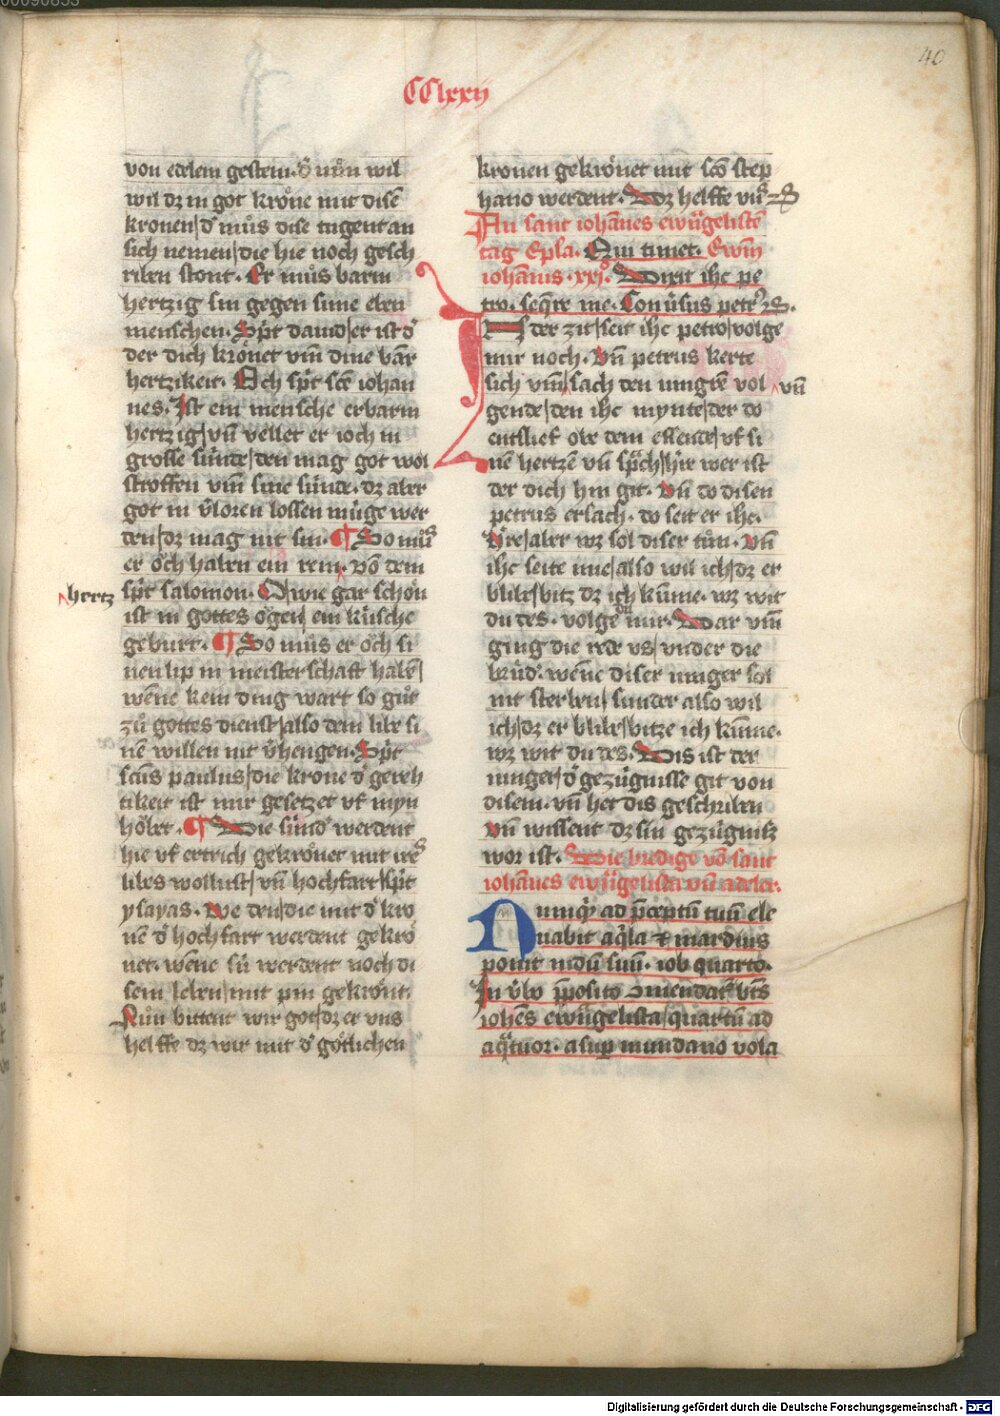 40
CClxxij
von edelem gestein · vnn wil
wil dz in got kröne mit disē
kronen / d' můs dise tugent an
sich nemen / die hie noch gesch
riben stont · Er můs barm
hertzig sin gegen sime eben
menschen · Sp̄t dauid / er ist d'
der dich krönet vm̄ dine barm
hertzikeit · Och sp̄t sc̄s iohan
nes · Ist ein mensche erbarm
hertzig / vn̄ vellet er ioch in
grosse sünde / den mag got wol
stroffen vm̄ sine sünde · dz aber
got in v'loren lossen müge wer
den / dz mag nit sin · ¶ So můs
er öch haben ein rein · Vō dem
hertz
sp̄t salomon · O / wie gar schön
ist in gottes ögen / ein küsche
geburt · ¶ So můs er öch si
nen lip in meisterschaft habē /
wēne kein ding wart so gůt
zů gottes dienst / also dem libe si
nē willen nit v'hengen · Sp̄t
sc̄us paulus / die krone d' gereh
tikeit ist mir gesetzet vf myn
höbet · ¶ Die sünd' werdent
hie vf ertrich gekrönet mit ires
libes wollust / vn̄ hochfart / sp̄t
ysayas · We den / die mit d' kro
nē d' hochfart werdent gekrö
net · wēne sü werdent noch di
sem leben / mit pin gekrönt ·
Nůn bittent wir got / dz er vns
helffe dz wir mit d' götlichen
kronen gekrönet mit sc̄o step
hano werdent · Dz helffe vns
An sant iohānes ewūgelistē
tag Ep̄la · Qui timet · Ewm̄
iohānis · xxj° · Dixit ih̄c pe
tro · seq̄re me · Con v'sus petr9
IN der zit / seit ih̄c petro / volge
mir noch · Vn̄ petrus kerte
sich vm̄ / sach den iungrē vol
vn̄
gende / den ih̄c mynte / der do
entslief obe dem essende / vf si
nē hertzē vn̄ sp̄ch / h're wer ist
der dich hin git · Vn̄ do disen
petrus ersach · do seit er ih̄c ·
h're / aber wz sol diser tůn · Vn̄
ih̄c seite ime / also wil ich / dz er
blibe / bitz dz ich kūme · wz wit
du des · volge du mir · Dar vm̄
ging die rede vs / vnder die
brüd' · wēne diser iunger sol
nit sterben / sunder also wil
ich / dz er blibe / bitze ich kūme ·
wz wit du des · Dis ist der
iunger / d' gezügnisse git von
disem · vn̄ het dis geschriben
Vn̄ wissent dz sin gezügnisz
wor ist · Die bredige vō sant
iohānes ewūgelista vn̄ adeler ·
Nunq̄ ad p̄ceptū tuū ele
uabit aq̄la et in arduis
ponit nidū suū · iob quarto ·
In v'bo p̄posito ⁊mendat' bt̄s
ioh̄es ewūgelista / quartū ad
aq̄tuor · a sup mundano vola
Digitalisierung gefördert durch die Deutsche Forschungsgemeinschaft - DFG